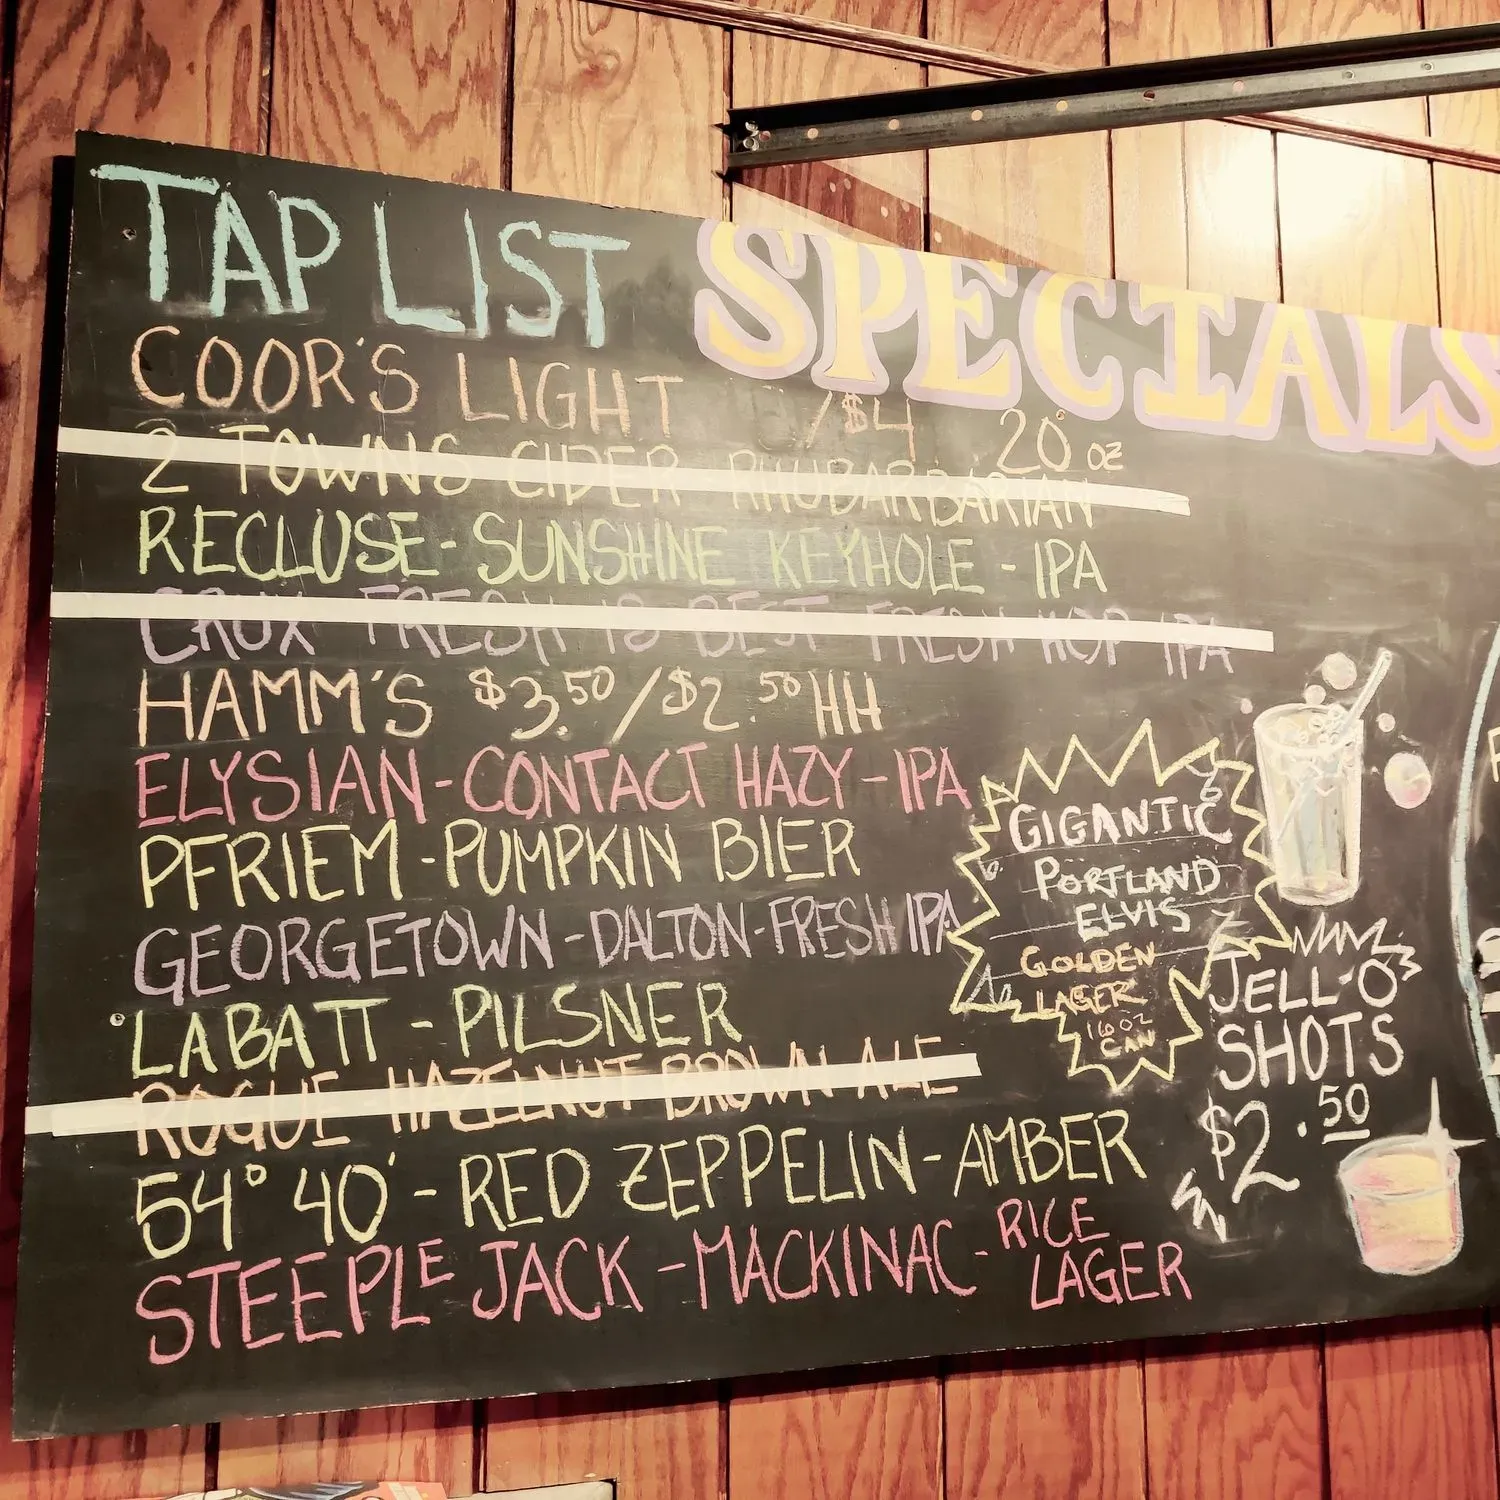 TAP LIST
SPECIALS
COOR'S LIGHT /$4 20° oz
2 TOWNS CIDER RHUBARBARIAN
RECLUSE-SUNSHINE KEYHOLE-IPA
CRUX FRESH IS BEST FRESH HOP IPA
HAMM'S $3.50/$2.50 HH
ELYSIAN-CONTACT HAZY-IPA
PFRIEM-PUMPKIN BIER
GEORGETOWN-DALTON-FRESH IPA
LABATT-PILSNER
ROGUE HAZELNUT BROWN ALE
54° 40'-RED ZEPPELIN-AMBER
STEEPLE JACK-MACKINAC-RICE
LAGER
GIGANTIC
PORTLAND
ELVIS
GOLDEN
LAGER
16OZ
CAN
JELL-O
SHOTS
$2.50